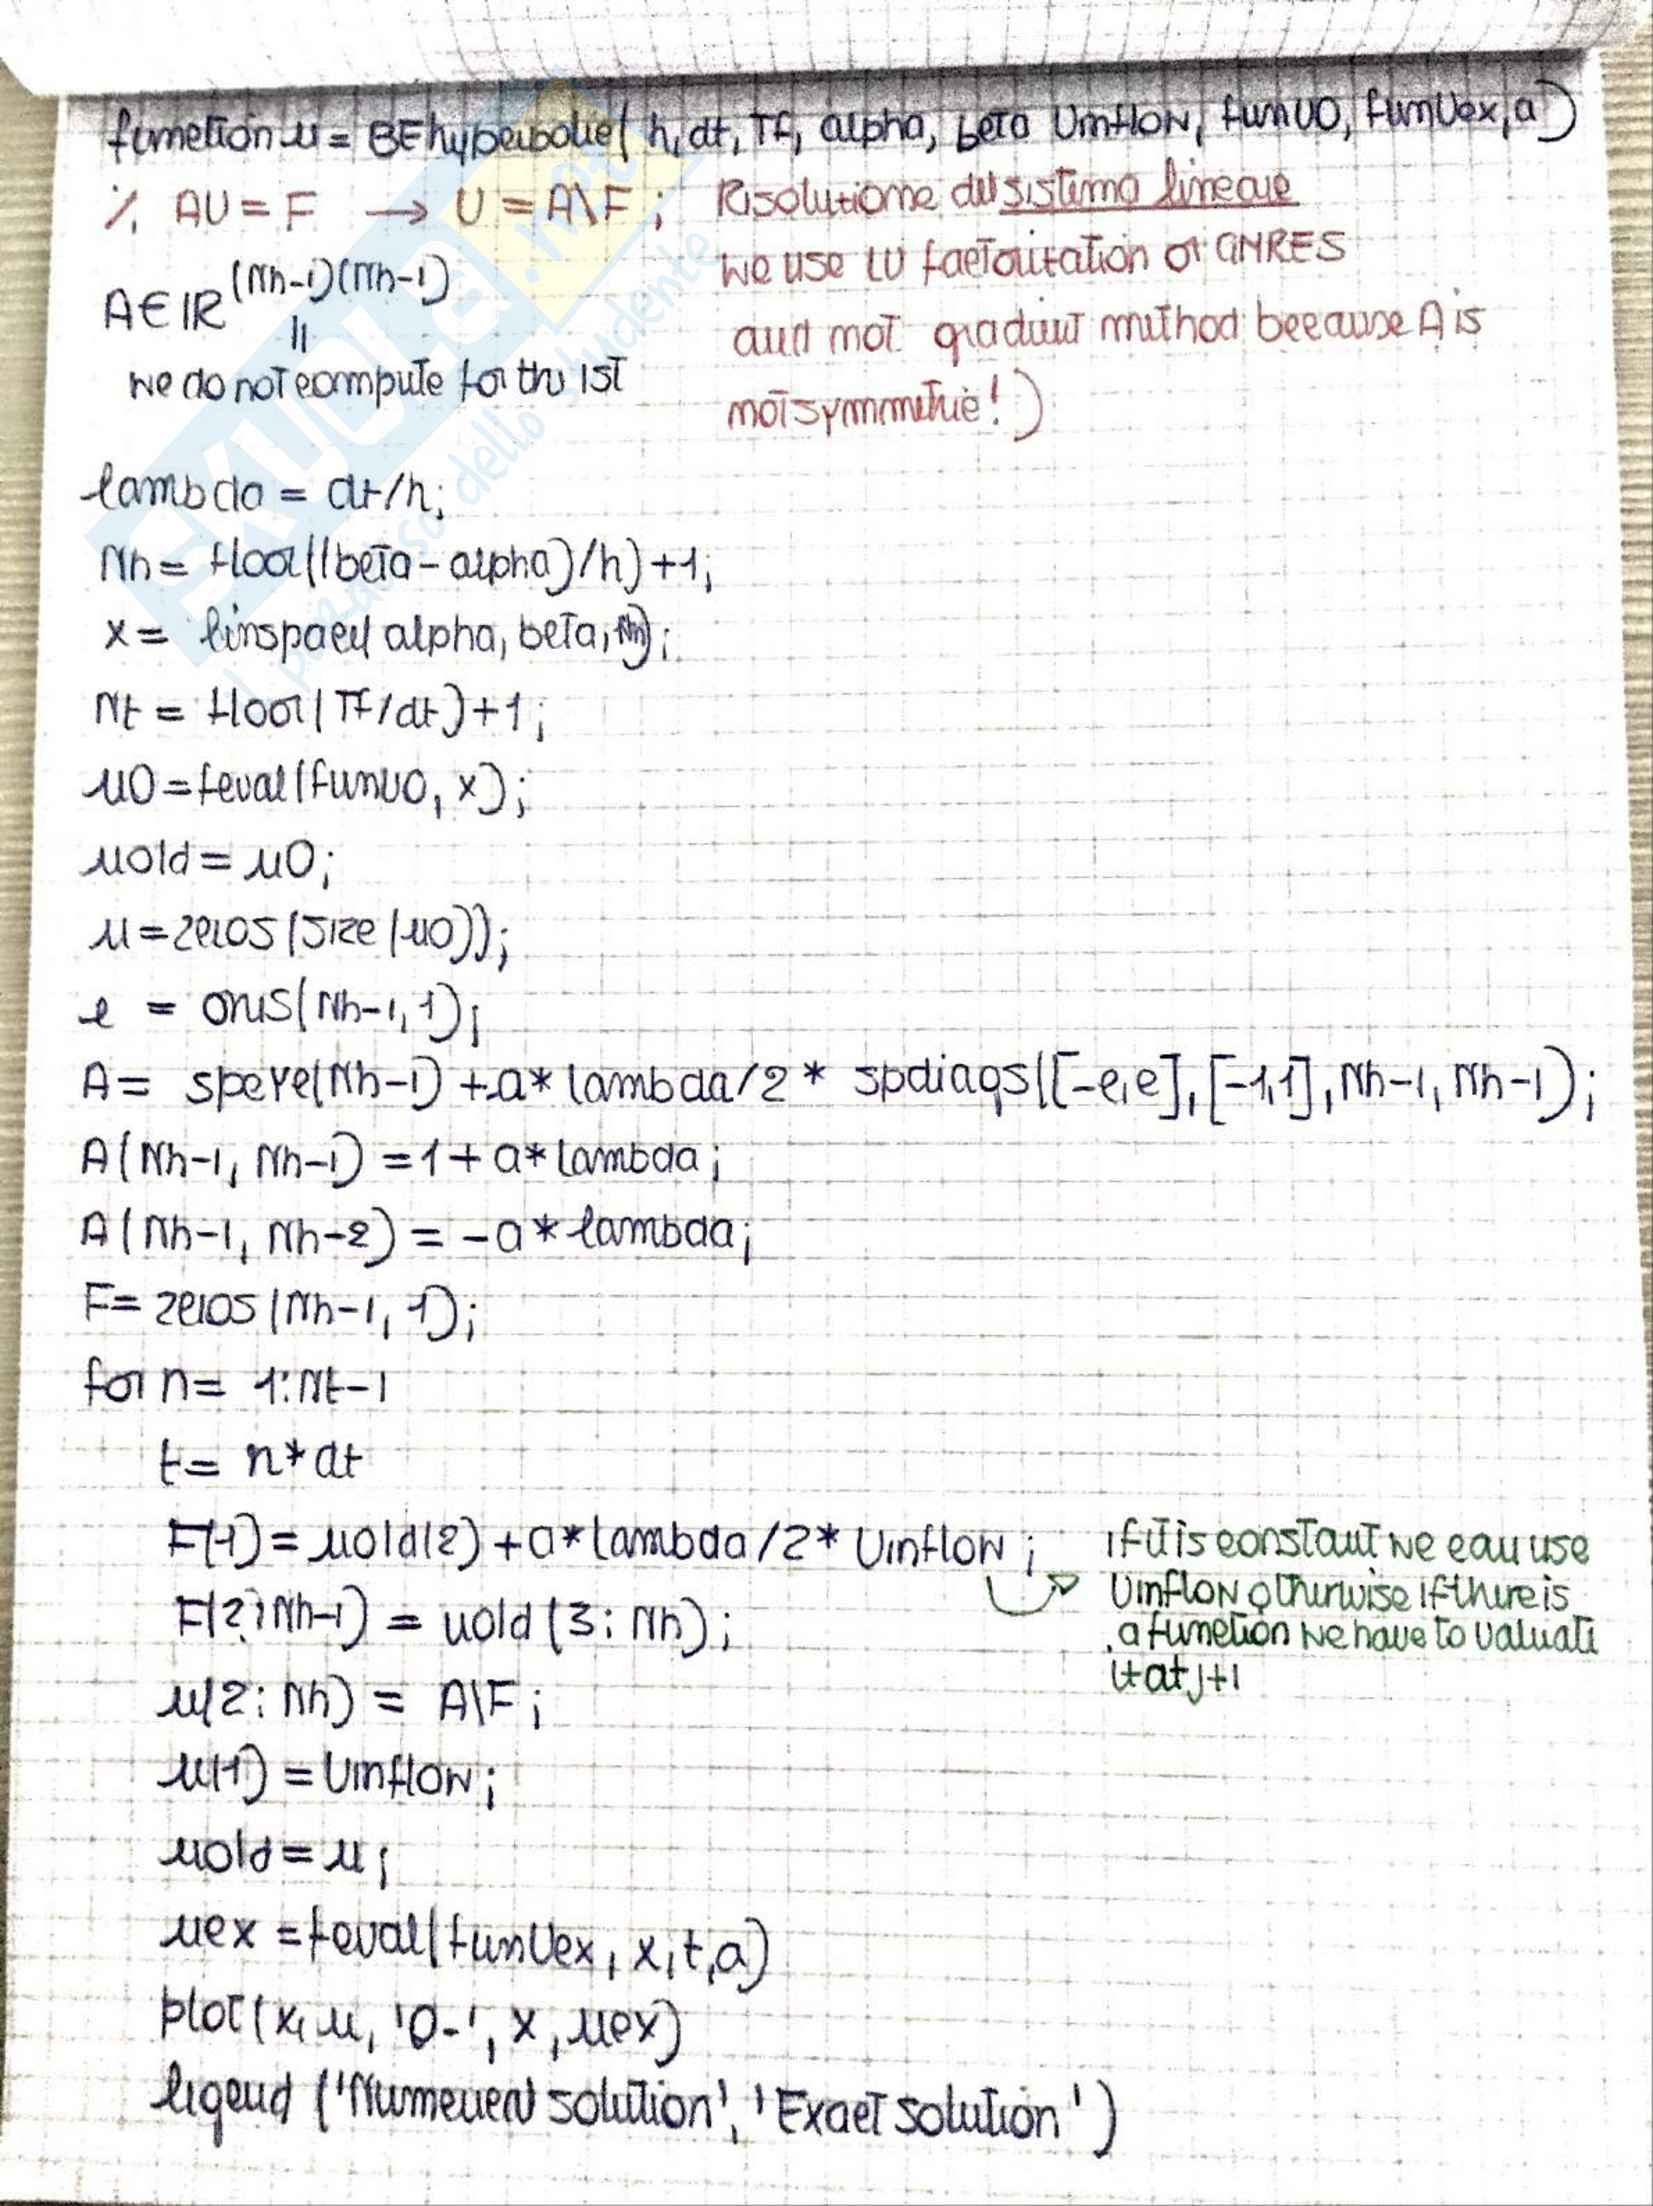 function u = BEhyperbolic( h, dt, Tf, alpha, beta Uinflow, funU0, funUex, a)
% AU = F → U = A\F ; Risolutione del sistema lineare
we use LU factorization or GMRES
A ∈ IR^(Nh-1)(Nh-1)
and not gradient method because A is
we do not compute for the 1st
not symmetric! )
lambda = dt/h;
Nh = floor((beta - alpha)/h) +1;
x = linspace( alpha, beta, Nh);
Nt = floor( Tf/dt)+1;
u0 = feval(funU0, x);
uold = u0;
u = zeros (size (u0));
e = ones(Nh-1, 1);
A = speye(Nh-1) + a* lambda/2 * spdiags([-e, e], [-1,1], Nh-1, Nh-1);
A(Nh-1, Nh-1) = 1 + a* lambda;
A(Nh-1, Nh-2) = -a* lambda;
F = zeros (Nh-1, 1);
for n = 1:Nt-1
t = n*dt
F(1) = uold(2) + a*lambda/2* Uinflow ; if it is constant we can use
Uinflow otherwise if there is
F(2:Nh-1) = uold (3: Nh);
a function we have to valuate
it at j+1
u(2: Nh) = A\F ;
u(1) = Uinflow;
uold = u;
uex = feval( funUex, x, t, a)
plot( x, u, 'o-', x, uex)
legend ('Numerical solution', 'Exact solution')
PAOLE.me
Il paradiso dello studente